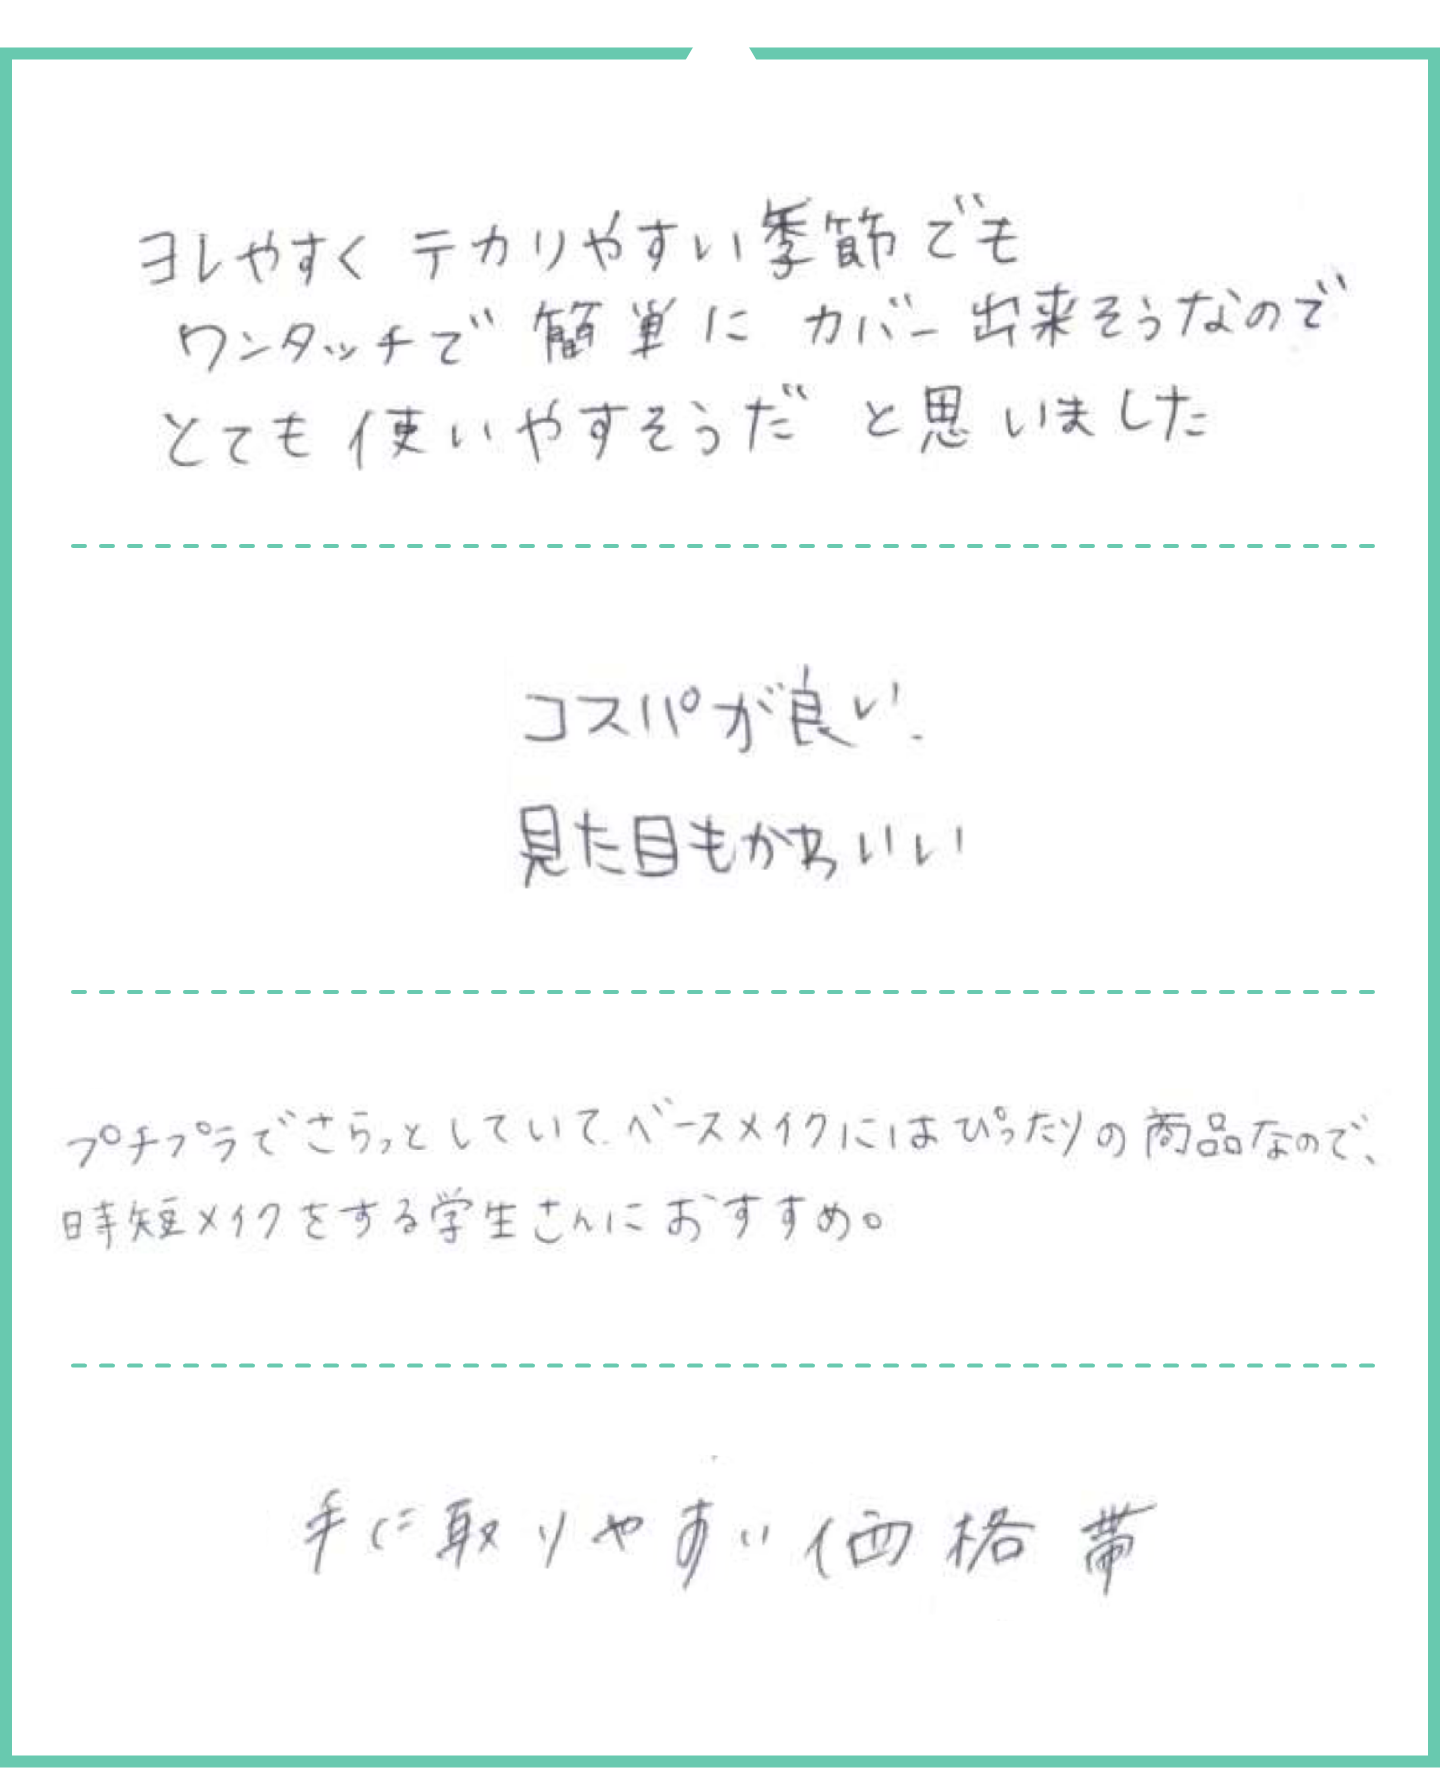 ヨレやすく テカリやすい季節でも
ワンタッチで 簡単に カバー出来そうなので
とても使いやすそうだ と思いました
コスパが良い.
見た目もかわいい
プチプラでさらっとしていて、ベースメイクにはぴったりの商品なので、
時短メイクをする学生さんにおすすめ。
手に取りやすい価格帯